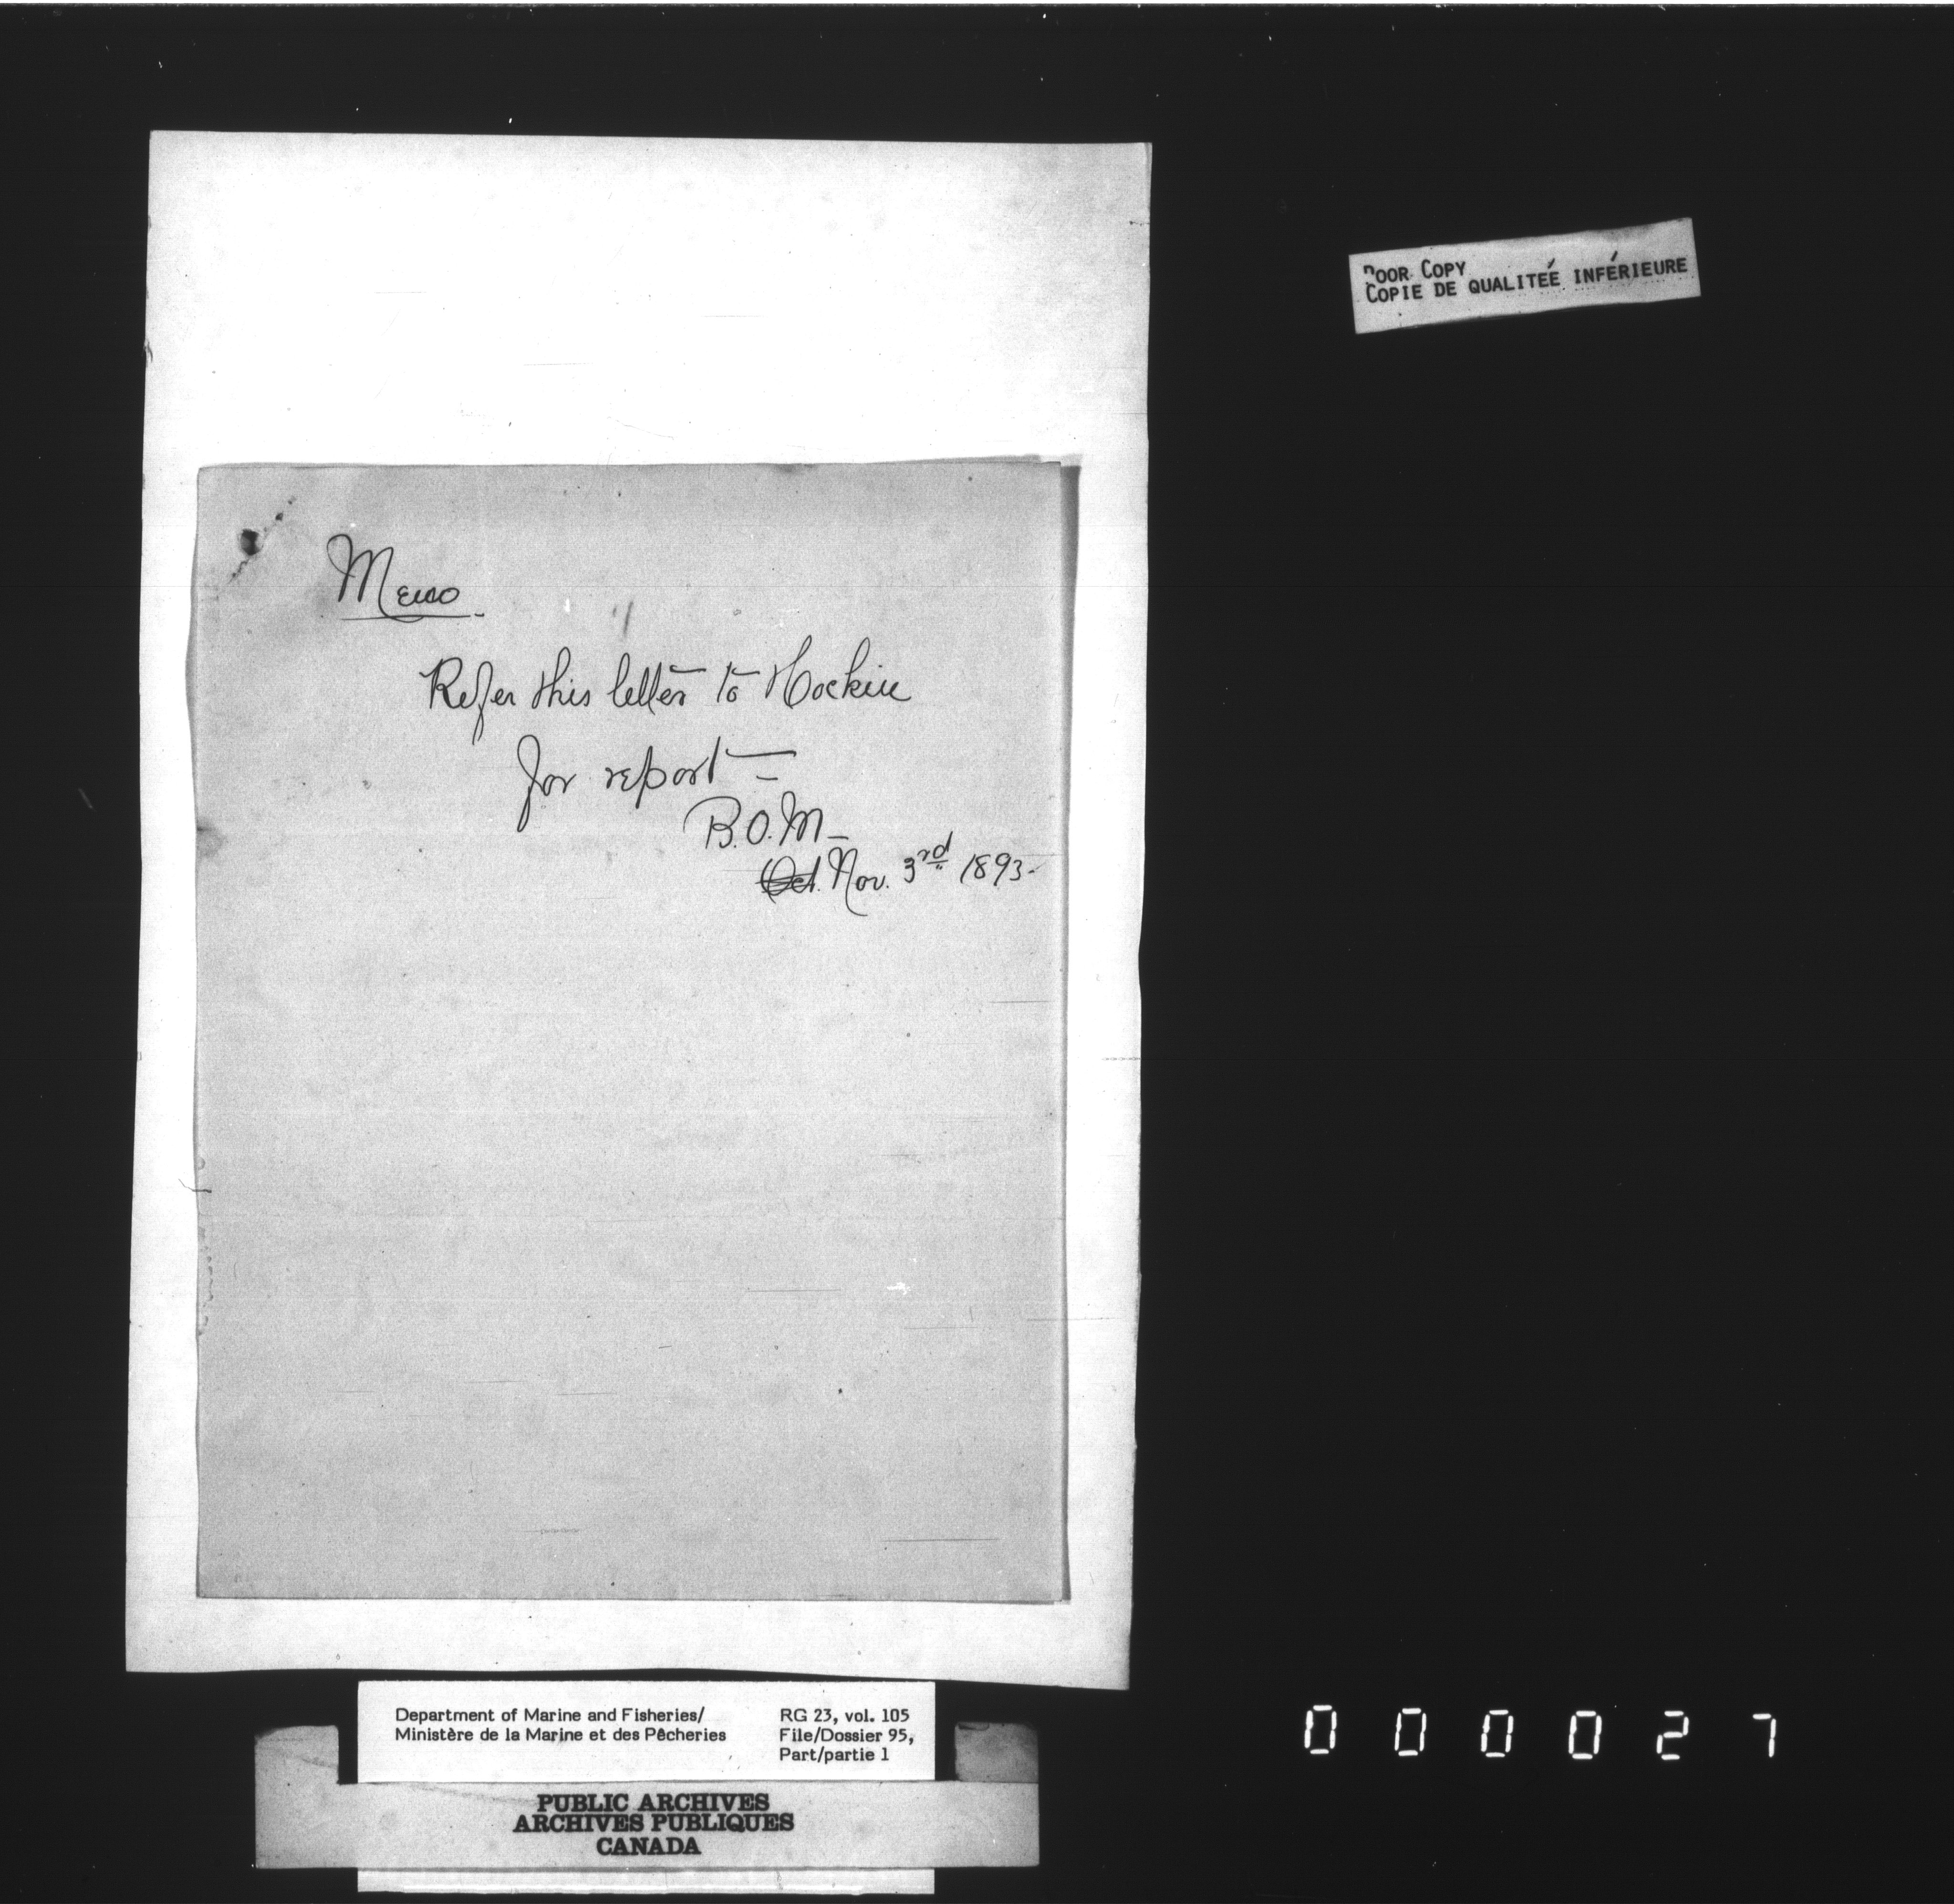 POOR COPY
COPIE DE QUALITEÉ INFÉRIEURE
Memo
Refer this letter to Hockin
for report —
B.O.M—
Oct. Nov. 3rd 1893-
Department of Marine and Fisheries/
Ministère de la Marine et des Pêcheries
RG 23, vol. 105
File/Dossier 95,
Part/partie 1
PUBLIC ARCHIVES
ARCHIVES PUBLIQUES
CANADA
000027